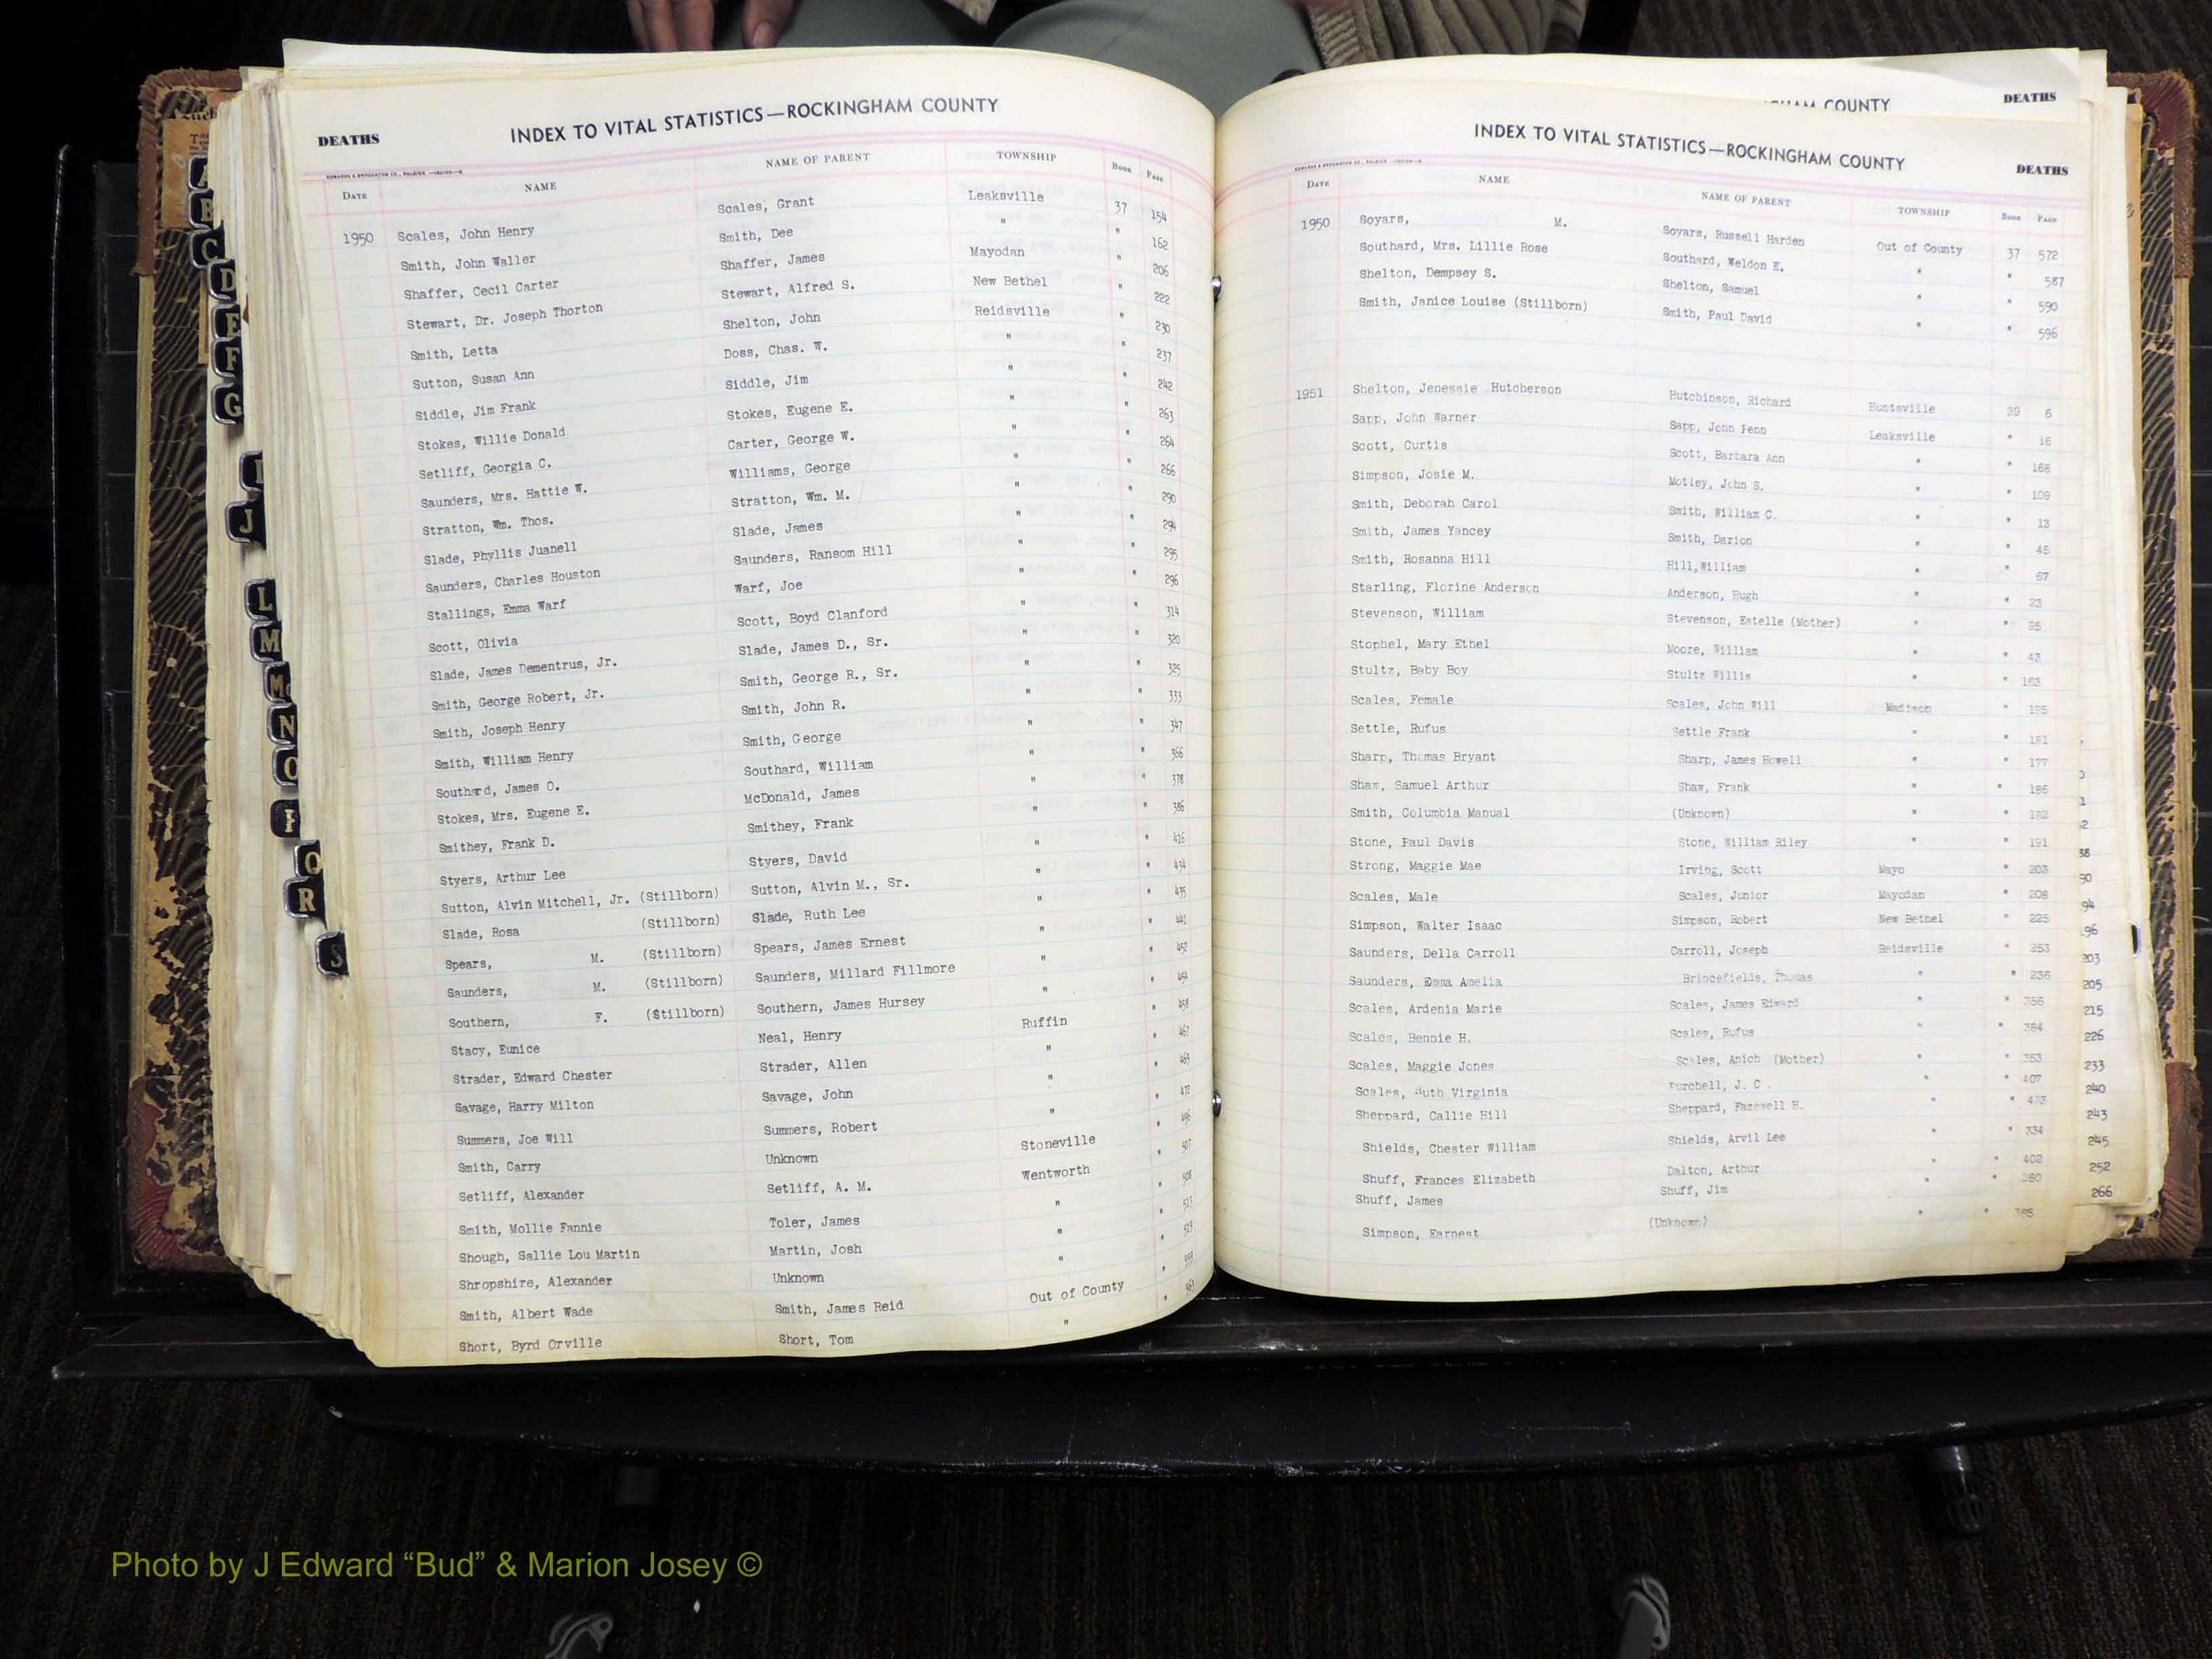 DEATHS INDEX TO VITAL STATISTICS—ROCKINGHAM COUNTY
DATE NAME NAME OF PARENT TOWNSHIP BOOK PAGE
1950 Scales, John Henry Scales, Grant Leaksville 37 154
Smith, John Waller Smith, Dee " " 162
Shaffer, Cecil Carter Shaffer, James Mayodan " 206
Stewart, Dr. Joseph Thorton Stewart, Alfred S. New Bethel " 222
Smith, Letta Shelton, John Reidsville " 230
Sutton, Susan Ann Doss, Chas. W. " " 237
Siddle, Jim Frank Siddle, Jim " " 242
Stokes, Willie Donald Stokes, Eugene E. " " 263
Setliff, Georgia C. Carter, George W. " " 264
Saunders, Mrs. Hattie W. Williams, George " " 266
Stratton, Wm. Thos. Stratton, Wm. M. " " 290
Slade, Phyllis Juanell Slade, James " " 294
Saunders, Charles Houston Saunders, Ransom Hill " " 295
Stallings, Emma Warf Warf, Joe " " 296
Scott, Olivia Scott, Boyd Clanford " " 314
Slade, James Dementrus, Jr. Slade, James D., Sr. " " 320
Smith, George Robert, Jr. Smith, George R., Sr. " " 325
Smith, Joseph Henry Smith, John R. " " 333
Smith, William Henry Smith, George " " 347
Southard, James O. Southard, William " " 366
Stokes, Mrs. Eugene E. McDonald, James " " 378
Smithey, Frank D. Smithey, Frank " " 386
Styers, Arthur Lee Styers, David " " 416
Sutton, Alvin Mitchell, Jr. (Stillborn) Sutton, Alvin M., Sr. " " 434
Slade, Rosa (Stillborn) Slade, Ruth Lee " " 435
Spears, M. (Stillborn) Spears, James Ernest " " 441
Saunders, M. (Stillborn) Saunders, Millard Fillmore " " 452
Southern, F. (Stillborn) Southern, James Hursey " " 454
Stacy, Eunice Neal, Henry Ruffin " 458
Strader, Edward Chester Strader, Allen " " 467
Savage, Harry Milton Savage, John " " 469
Summers, Joe Will Summers, Robert " " 472
Smith, Carry Unknown Stoneville "
Setliff, Alexander Setliff, A. M. Wentworth " 507
Smith, Mollie Fannie Toler, James " " 508
Shough, Sallie Lou Martin Martin, Josh " "
Shropshire, Alexander Unknown " "
Smith, Albert Wade Smith, James Reid Out of County "
Short, Byrd Orville Short, Tom " "
HAM COUNTY DEATHS
INDEX TO VITAL STATISTICS—ROCKINGHAM COUNTY DEATHS
DATE NAME NAME OF PARENT TOWNSHIP BOOK PAGE
1950 Soyars, M. Soyars, Russell Harden Out of County 37 572
Southard, Mrs. Lillie Rose Southard, Weldon E. " " 587
Shelton, Dempsey S. Shelton, Samuel " " 590
Smith, Janice Louise (Stillborn) Smith, Paul David " " 596
1951 Shelton, Jenessie Hutcherson Hutchinson, Richard Huntsville 39 6
Sapp, John Warner Sapp, John Penn Leaksville " 16
Scott, Curtis Scott, Barbara Ann " " 166
Simpson, Josie M. Motley, John S. " " 109
Smith, Deborah Carol Smith, William C. " " 13
Smith, James Yancey Smith, Darion " " 45
Smith, Rosanna Hill Hill,William " " 67
Starling, Florine Anderson Anderson, Hugh " " 23
Stevenson, William Stevenson, Estelle (Mother) " " 95
Stophel, Mary Ethel Moore, William " " 43
Stultz, Baby Boy Stultz Willis " " 163
Scales, Female Scales, John Will Madison " 195
Settle, Rufus Settle Frank " " 181
Sharp, Thomas Bryant Sharp, James Howell " " 177
Shaw, Samuel Arthur Shaw, Frank " " 186
Smith, Columbia Manual (Unknown) " " 182
Stone, Paul Davis Stone, William Riley " " 191
Strong, Maggie Mae Irving, Scott Mayo " 203
Scales, Male Scales, Junior Mayodan " 208
Simpson, Walter Isaac Simpson, Robert New Bethel " 225
Saunders, Della Carroll Carroll, Joseph Reidsville " 253
Saunders, Emma Amelia Brincefields, Thomas " " 236
Scales, Ardenia Marie Scales, James Edward " " 356
Scales, Bennie H. Scales, Rufus " " 384
Scales, Maggie Jones Scales, Anich (Mother) " " 353
Scales, Ruth Virginia J. C. " " 407
Sheppard, Callie Hill Sheppard, Fazewell H. " 423
Shields, Chester William Shields, Arvil Lee " " 334
Shuff, Frances Elizabeth Dalton, Arthur " " 402
Shuff, James Shuff, Jim " " 260
Simpson, Earnest (Unknown) " "
90
94
96
203
205
215
226
233
240
243
245
252
266
A
B
C
D
E
F
G
I
J
L
M
Mc
N
O
P
Q
R
S
Photo by J Edward “Bud” & Marion Josey ©